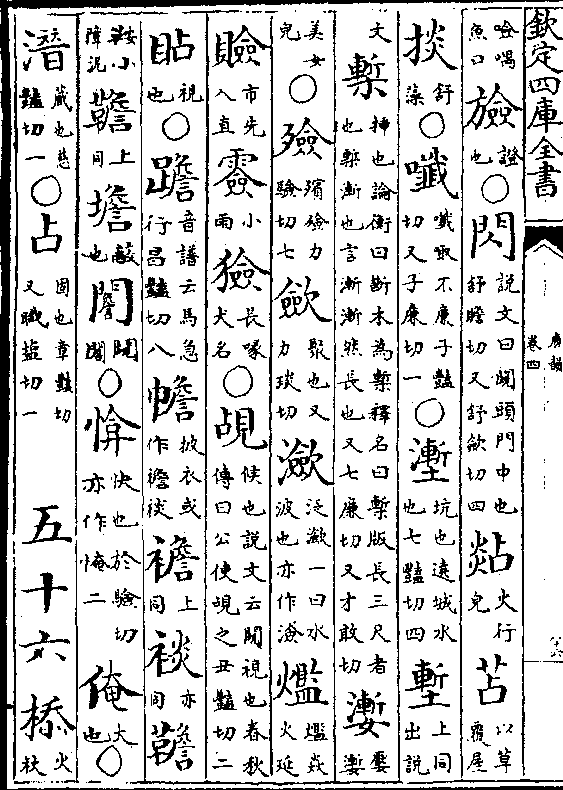 欽定四庫全書
廣韻
卷四
噞喁魚口 證也○閃說文曰闚頭門中也舒贍切又舒歛切四煔火行皃苫以草覆屋
掞舒藻○ 取不廉子豔切又子廉切一○壍坑也遶城水也七豔切四塹上同出說
文槧插也論衡曰斷木為槧釋名曰槧版長三尺者也槧漸也言漸漸然長也又七廉切又才敢切嬱嬱嬱
美女皃○殮殯殮力驗切七歛聚也又力琰切瀲泛瀲一曰水波也亦作澰爁爁焱火延
䞼市先入直䨬小雨獫長喙犬名○覘候也說文云闚視也春秋傳曰公使覘之丑豔切二
䀡視也○蹹音譜云馬急行昌豔切八幨披衣或作襜裧襜上同裧亦同韂
鞍小障泥 上同 也 ○ 快也於驗切亦作 二俺大也○
潛藏也慈豔切一○占固也章豔切又職 切一 五十六㮇火杖